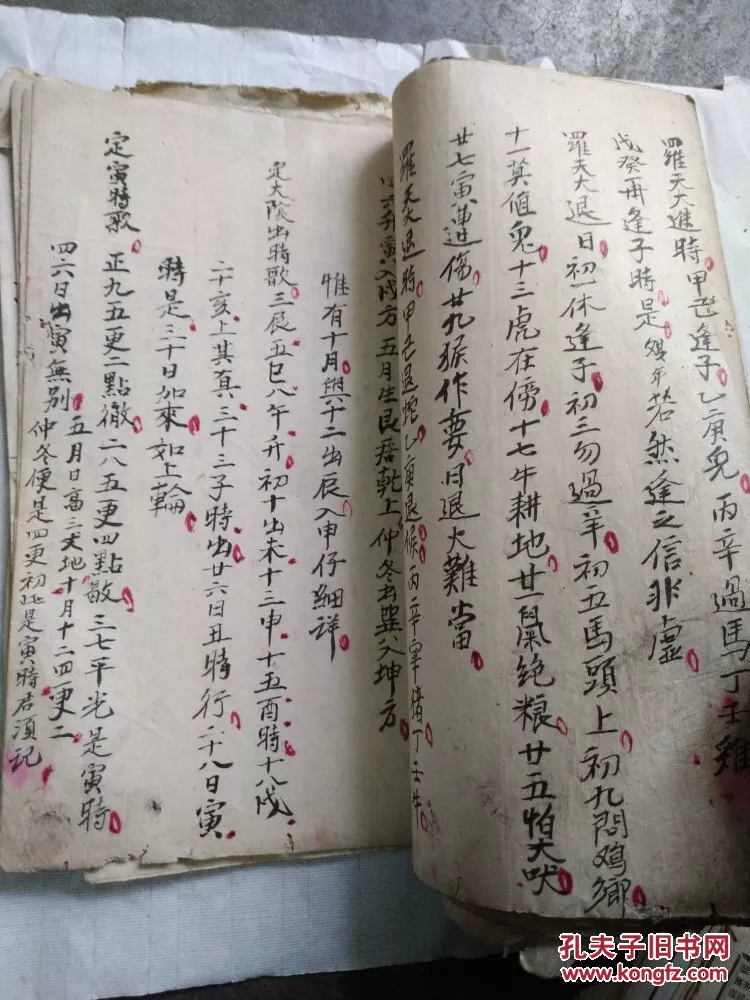 羅天大進時甲己逢子乙庚兔丙辛過馬丁壬雞
戊癸再逢子時是 若然逢之信非虛
羅天大退日初一休逢子初三勿過羊初五馬頭上初九問鸡鄉
十一莫值兔十三虎在傍十七牛耕地廿一鼠绝粮廿五怕犬吠
廿七寅曲遭傷廿九猴作耍日退大難當
羅天大退時甲己退蛇乙庚退候丙辛宰猪丁壬牛
寅入戌方五月生艮居乾上仲冬出巽入坤方
惟有十月與十二出辰入申仔細詳
定太陰出時歌三辰五巳八午升初十出未十三申十五酉時十八戌
二十亥上其真二十三子時出廿六日丑時行二十八日寅
時是三十日加來如上輪
定寅時歌正九五更二點徹二八五更四點歇三七平光是寅時
四六日出寅無別五月日高三丈地十月十二四更二
仲冬便是四更初此是寅時君須记
孔夫子旧书网
kongfz.com